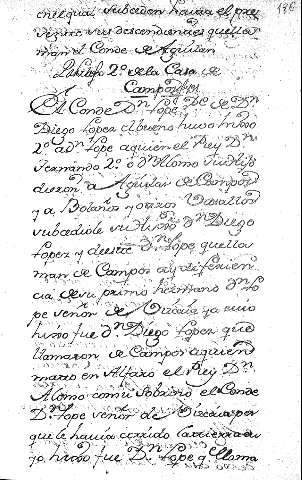 en el qual subceden hasta el pre
sente sus descendientes que lla
man el Conde de Aguilar
Parrafo 2º de la Casa de
Campos
186
El Conde Dn Lope de Dn
Diego Lopez el bueno huvo hijo
2º a Dn Lope a quien el Rey Dn
Fernando 2º o Dn Alonso
dieron a Aguilar de Campos
y a Bolaños y otros Vasallos
subcediole su hijo Dn Diego
Lopez y deeste Dn Lope que lla
man de Campos a diferien
cia de su primo hermano Dn Lo
pe señor de Vizcaia cuio
hijo fue Dn Diego Lopez que
llamaron de Campos a quien
mató en Alfaro el Rey Dn
Alonso como sobrino el Conde
Dn Lope señor de Vizcaia por
que le havia corrido la tierra
hijo fue Dn Lope q llama